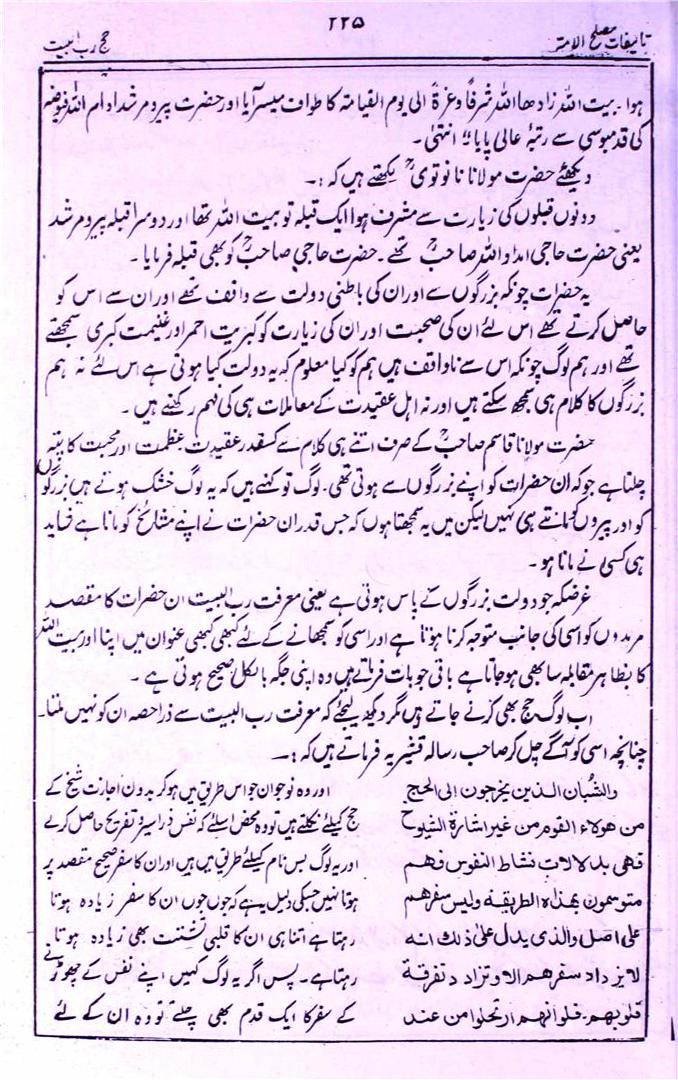 تالیفات مصلح الامتؒ
۲۲۵
حج رب البیت
ہوا۔ بیت اللہ زادھا اللہ شرفاً وعزۃً الی یوم القیامۃ کا طواف میسر آیا اور حضرت پیر و مرشد ادام اللہ فیوضہٗ
کی قدمبوسی سے رتبۂ عالی پایا" انتہیٰ۔
دیکھئے حضرت مولانا نانوتویؒ لکھتے ہیں کہ:۔
دونوں قبلوں کی زیارت سے مشرف ہوا ایک قبلہ تو بیت اللہ تھا اور دوسرا قبلہ پیر و مرشد
یعنی حضرت حاجی امداد اللہ صاحبؒ تھے۔ حضرت حاجی صاحبؒ کو بھی قبلہ فرمایا۔
یہ حضرات چونکہ بزرگوں سے اور ان کی باطنی دولت سے واقف تھے اور ان سے اس کو
حاصل کرتے تھے اس لئے ان کی صحبت اور ان کی زیارت کو کبریت احمر اور غنیمت کبریٰ سمجھتے
تھے اور ہم لوگ چونکہ اس سے ناواقف ہیں ہم کو کیا معلوم کہ یہ دولت کیا ہوتی ہے اس لئے نہ ہم
بزرگوں کا کلام ہی سمجھ سکتے ہیں اور نہ اہل عقیدت کے معاملات ہی کی فہم رکھتے ہیں۔
حضرت مولانا قاسم صاحبؒ کے صرف اتنے ہی کلام سے کسقدر عقیدت عظمت اور محبت کا پتہ
چلتا ہے جو کہ ان حضرات کو اپنے بزرگوں سے ہوتی تھی۔ لوگ تو کہتے ہیں کہ یہ لوگ خشک ہوتے ہیں بزرگوں
کو اور پیروں کو مانتے ہی نہیں لیکن میں یہ سمجھتا ہوں کہ جس قدر ان حضرات نے اپنے مشائخ کو مانا ہے شاید
ہی کسی نے مانا ہو۔
غرضکہ جو دولت بزرگوں کے پاس ہوتی ہے یعنی معرفت رب البیت ان حضرات کا مقصد
مریدوں کو اسی کی جانب متوجہ کرنا ہوتا ہے اور اسی کو سمجھانے کے لئے کبھی کبھی عنوان میں اپنا اور بیت اللہ
کا بظاہر مقابلہ سا بھی ہو جاتا ہے باقی جو بات فرماتے ہیں وہ اپنی جگہ بالکل صحیح ہوتی ہے۔
اب لوگ حج بھی کرنے جاتے ہیں مگر دیکھ لیجئے کہ معرفت رب البیت سے ذرا حصہ ان کو نہیں ملتا۔
چنانچہ اسی کو آگے چل کر صاحب رسالہ قشیریہ فرماتے ہیں کہ:۔
والشبان الذین یخرجون الی الحج
من ھولاء القوم من غیر اشارۃ الشیوخ
فھی بدلالات نشاط النفوس فھم
متوسمون بھذاہ الطریقۃ ولیس سفرھم
علی اصل والذی یدل علیٰ ذلک انہ
لا یزداد سفرھم الا وتزداد تفرقۃ
قلوبھم۔ فلو انھم ارتحلوا من عند
اور وہ نوجوان جو اس طریق میں ہو کر بدون اجازت شیخ کے
حج کیلئے نکلتے ہیں تو وہ محض اسلئے کہ نفس ذرا سیر و تفریح حاصل کرلے
اور یہ لوگ بس نام کیلئے طریق میں ہیں اور ان کا سفر صحیح مقصد پر
ہوتا نہیں جسکی دلیل یہ ہے کہ جوں جوں ان کا سفر زیادہ ہوتا
رہتا ہے اتنا ہی ان کا قلبی تشتت بھی زیادہ ہوتا
رہتا ہے۔ پس اگر یہ لوگ کہیں اپنے نفس کے چھوڑنے
کے سفر کا ایک قدم بھی چلتے تو وہ ان کے لئے